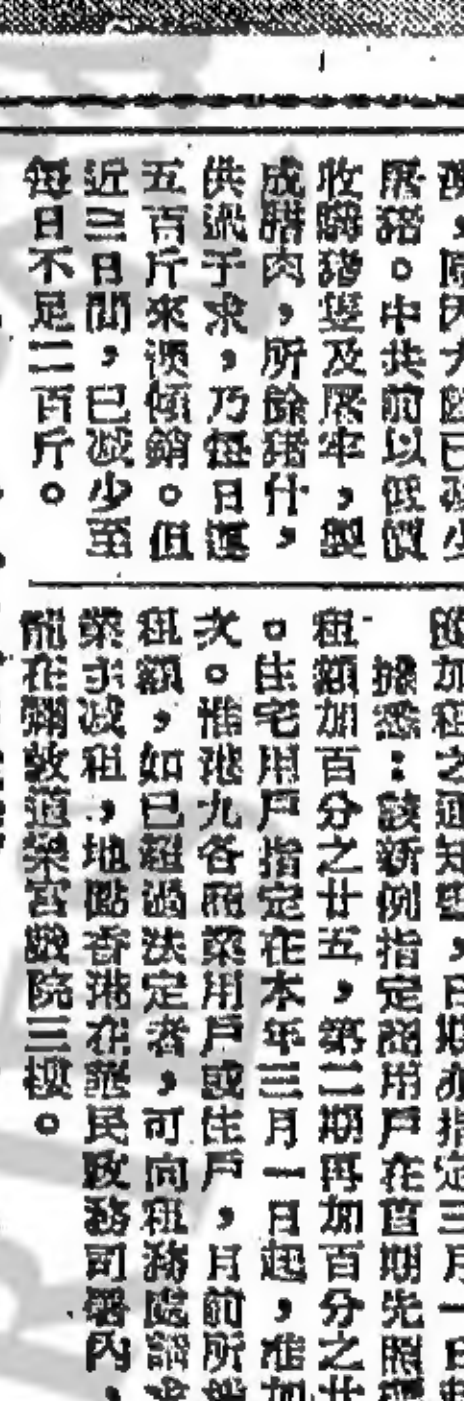 屠豬。中共前以低價
收購豬隻及屠宰，製
成腊肉，所餘豬什，
供過于求，乃每日運
五百斤來澳傾銷。但
近三日間，已減少至
每日不足二百斤。
的加租之通知書，日期亦指定三月一日起
據悉：該新例指定商用戶在首期先照
租額加百分之廿五，第二期再加百分之廿
。住宅用戶指定在本年三月一日起，准加
次。惟港九各商業用戶或住戶，月前所
租額，如已超過法定者，可向租務處請求
業主減租，地點香港在華民政務司署內，
而在彌敦道樂宮戲院三樓。